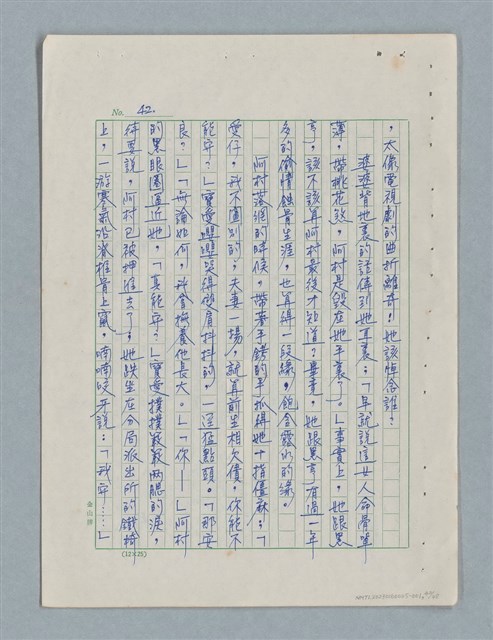 No. 42.
，太像電視劇的曲折離奇！她該悼念誰？
婆婆背地裏的話傳到她耳裏：「早就說這女人命骨單
薄，帶桃花煞，阿村是毀在她手裏？。」事實上，她跟黑
亨，該不該算阿村最後才知道？畢竟，她跟黑亨有過一年
多的偷情蝕骨生涯，也算得一段緣，飽含露水的緣。
阿村落網的時候，帶著手銬的手抓得她十指僵麻：「
愛仔，我不甘別的，夫妻一場，就算前生相欠債，你能不
能守？」寶愛嚶嚶哭得雙肩抖抖的，一逕猛點頭。「那安
良？」「無論如何，我會撫養他長大。」「你—」阿村
的黑眼圈逼近她，「真能守？」寶愛撲撲簌簌兩腮的淚，
待要說，阿村已被押進去了，她跌坐在分局派出所的鐵椅
上，一游寒氣沿脊椎骨上竄，喃喃咬牙說：「我守……」
金山牌
(12×25)